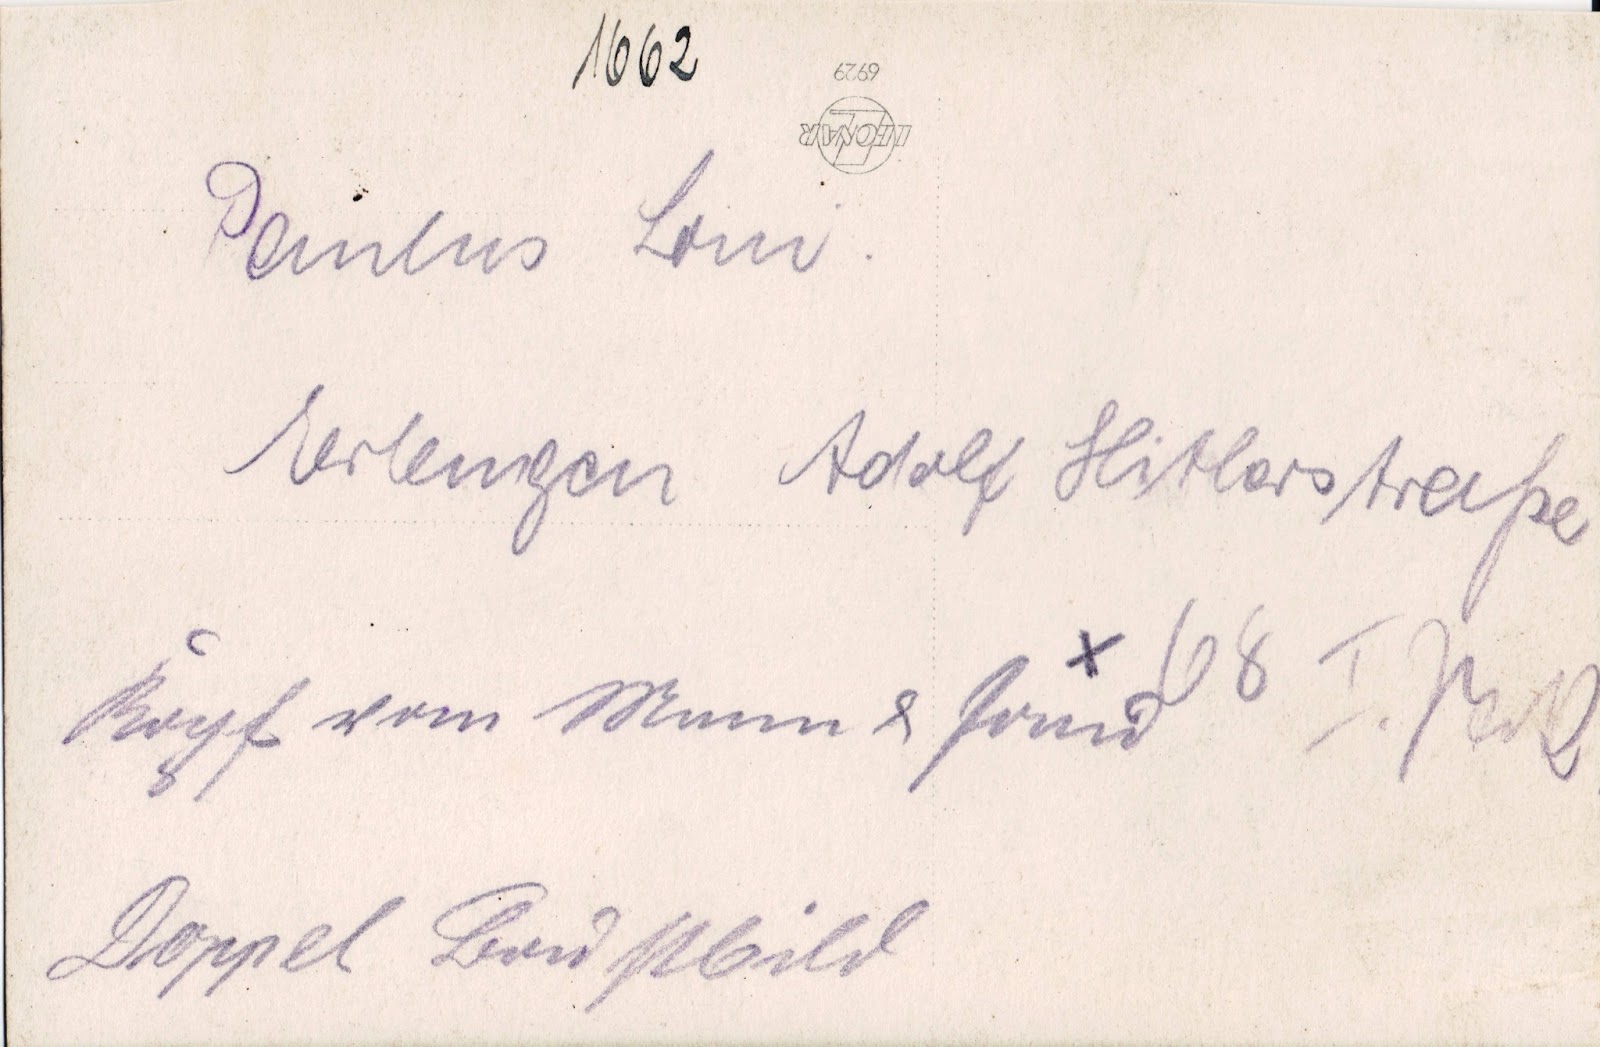 1662
6929
LEONAR
Paulus Loni.
Erlangen Adolf Hitlerstraße
x 68 I.
Kopf vom Mann &
Doppel Brustbild